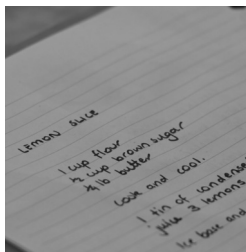 LEMON SLICE
1 cup flour
½ cup brown sugar
¼ lb butter
Cook and cool.
1 tin of condens
juice 3 lemons
base and